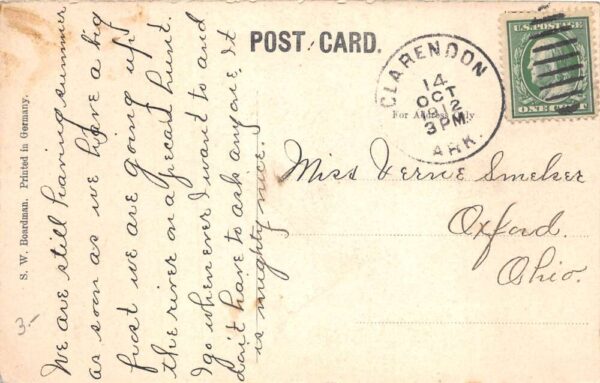 POST CARD.
U.S. POSTAGE
ONE CENT
CLARENDON
14
OCT
1912
3 PM
ARK.
For Address Only
S. W. Boardman. Printed in Germany.
We are still having summer
as soon as we have a big
frost we are going up
the river on a pecan hunt.
I go when ever I want to and
don't have to ask anyone. It
is mighty nice.
Miss Verne Smelser
Oxford.
Ohio.
3-